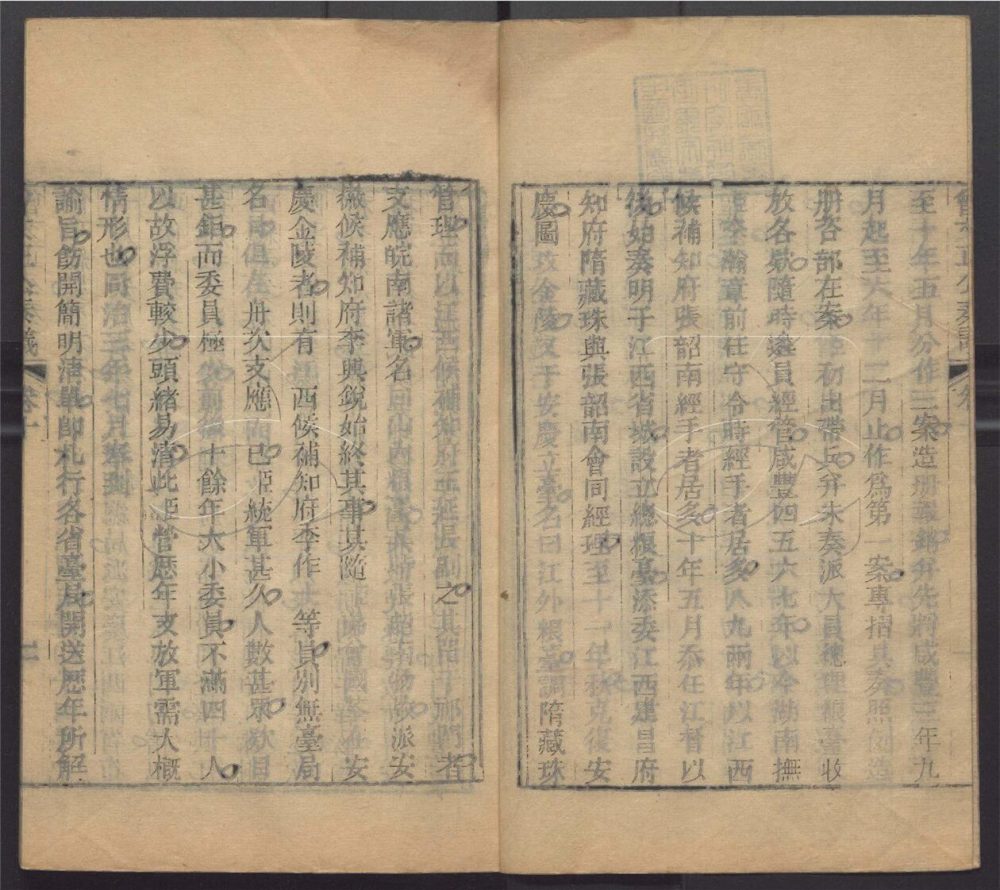 至十年五月分作三案造册報銷幷先將咸豐三年九
月起至六年十二月止作爲第一案專摺具奏照例造
册咨部在案 初出帶兵幷未奏派大員總理糧臺收
放各款隨時遴員經管咸豐四五六七年以今湖南撫
臣李瀚章前任守令時經手者居多八九兩年以江西
候補知府張韶南經手者居多十年五月忝任江督以
後始奏明于江西省城設立總糧臺添委江西建昌府
知府隋藏珠與張韶南會同經理至十一年秋克復安
慶圖攻金陵又于安慶立臺名曰江外糧臺調隋藏珠
管理而以江西候補知府王延長副之其留于祁門者
支應皖南諸軍名曰山內糧臺 派安
徽候補知府李興銳始終其事其隨 安
慶金陵者則有江西候補知府李作士等員別無臺局
名目但在 舟次支應而已 統軍甚久人數甚衆款目
甚鉅而委員極 前後十餘年大小委員不滿四十人
以故浮費較少頭緒易清此 營歷年支放軍需大概
情形也同治三年七月奉到
諭旨飭開簡明清單即札行各省臺局開送歷年所解